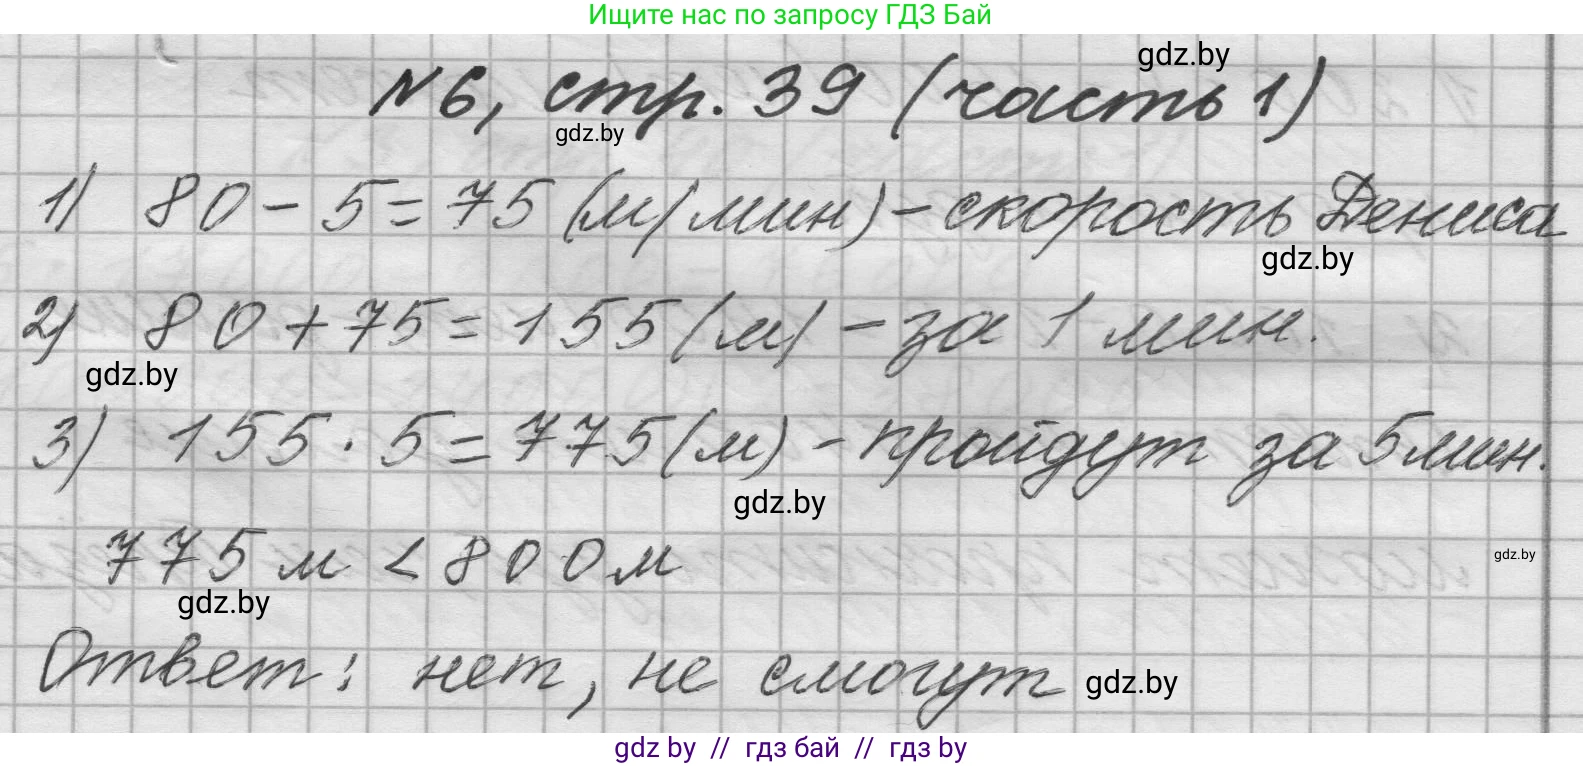 Ищите нас по запросу ГДЗ Бай
gdz.by
№ 6, стр. 39 (часть 1)
gdz.by
1) 80 - 5 = 75 (м/мин) - скорость Дениса
gdz.by
2) 80 + 75 = 155 (м) - за 1 мин.
gdz.by
3) 155 · 5 = 775 (м) - пройдут за 5 мин.
gdz.by
775 м < 800 м
gdz.by
gdz.by
Ответ: нет, не смогут
gdz.by
gdz by // гдз бай // гдз by